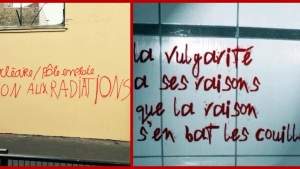 cléaire / pôle emploie
ON AUX RADIATIONS
la vulgarité
a ses raisons
que la raison
s'en bat les couill